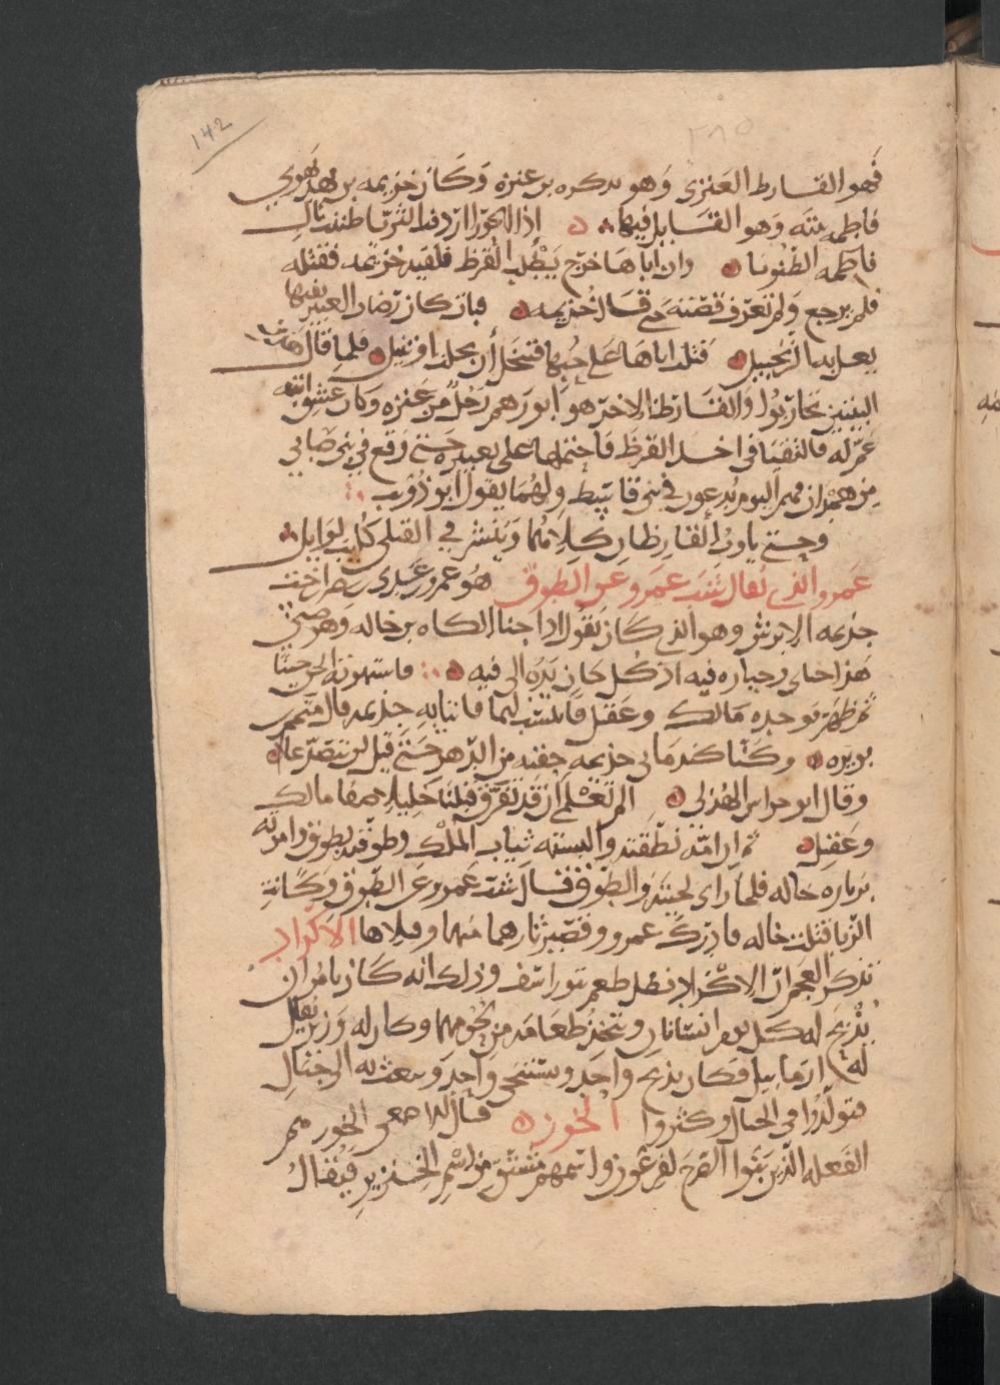 ١٤٢
فهو القارظ العنزي وهو يذكره بن عنزه وكان خزيمه بن نهد يهوي
فاطمه بنته وهو القايل فيها اذا الجوزا اردفت الثريا ظننت بال
فاطمه الظنونا وان اباها خرج يطلب القرظ فلقيه خزيمه فقتله
فلم يرجع ولم تعرف قصته حتى قال خزيمه فتاة كان رضاب العبير بفيها
يعل به الزنجبيل قتلت اباها على حبها فتبخل ان بخلت او تنيل فلما قال هذين
البيتين تحاربوا والقارظ الاخر هو ابو رهم رجل من عنزه وكان عشق ابنة
عم له فالتقيا في اخذ القرظ فاحتملها على بعيره حتى وقع في بني
من همدان فهم اليوم يدعون في بني قابط ولهما يقول ابو ذؤيب
وحتى ياوب القارظان كلاهما وينشر في القتلى كليب لوايل
عمرو الذي يقال شب عمرو عن الطوق هو عمرو بن عدي بن اخت
جذيمه الابرش وهو الذي كان يقول اذا جنا الكماه بن خاله وهو صبي
هذا جناي وخياره فيه اذ كل جان يده الى فيه فاستهوته الجن حينا
ثم ظهر فوجده مالك وعقيل فانتسب لهما فاتيا به جذيمه قال متمم
بن نويره وكنا كندماني جذيمه حقبه من الدهر حتى قيل لن نتصدعا
وقال ابو خراش الهذلي الم تعلم ان قد تفرق قبلنا خليلا صفا مالك
وعقيل ثم ان امه نظفته والبسته ثياب الملك وطوقته بطوق وامرته
بزياره خاله فلما راى لحيته والطوق قال شب عمرو عن الطوق وكانت
الزبا قتلت خاله فادرك عمرو وقصير ثارهما منها وقتلاها الاكراد
تذكر العجم ان الاكراد فضل طعم بيوراسف وذلك انه كان يامر ان
يذبح له كل يوم انسانان ويتخذ طعامه من لحومهما وكان له وزير يقال
له ارماييل فكان يذبح واحد ويستحيى واحد ويبعث به الى جبال
فتولدوا في الجبال وكثروا الخوز قال الاصمعي الخوز هم
الفعله الذين بنوا الصرح لفرعون واسمهم مشتق من اسم الخنزير فيقال